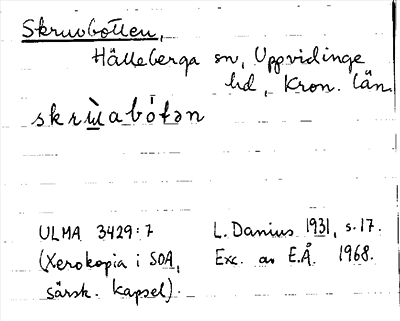 Skruvbotten,
Hälleberga sn, Uppvidinge
hd, Kron. län.
skrùabótən
ULMA 3429:7
(Xerokopia i SOA,
särsk. kapsel).
L. Danius 1931, s. 17.
Exc. av E.Å. 1968.